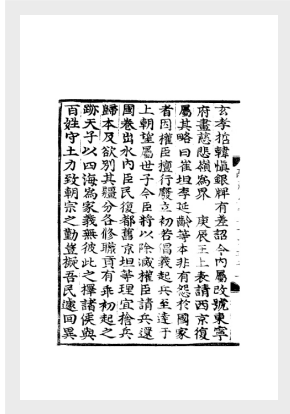 玄孝哲韓愼銀牌有差詔令內屬改號東寧
府畫慈悲嶺爲界 庚辰王上表請西京復
屬其略曰崔坦李延齡等本非有怨於國家
者因權臣擅行廢立初皆倡義起兵至達于
上朝遂屬世子今臣將以除滅權臣請兵還
國卷出水內臣民復都舊京坦等理宜捨兵
歸本反欲別其疆分各修職貢有乖初起之
跡天子以四海爲家義無彼此之擇諸侯與
百姓守土力致朝宗之勤豈擬吾民遽回異